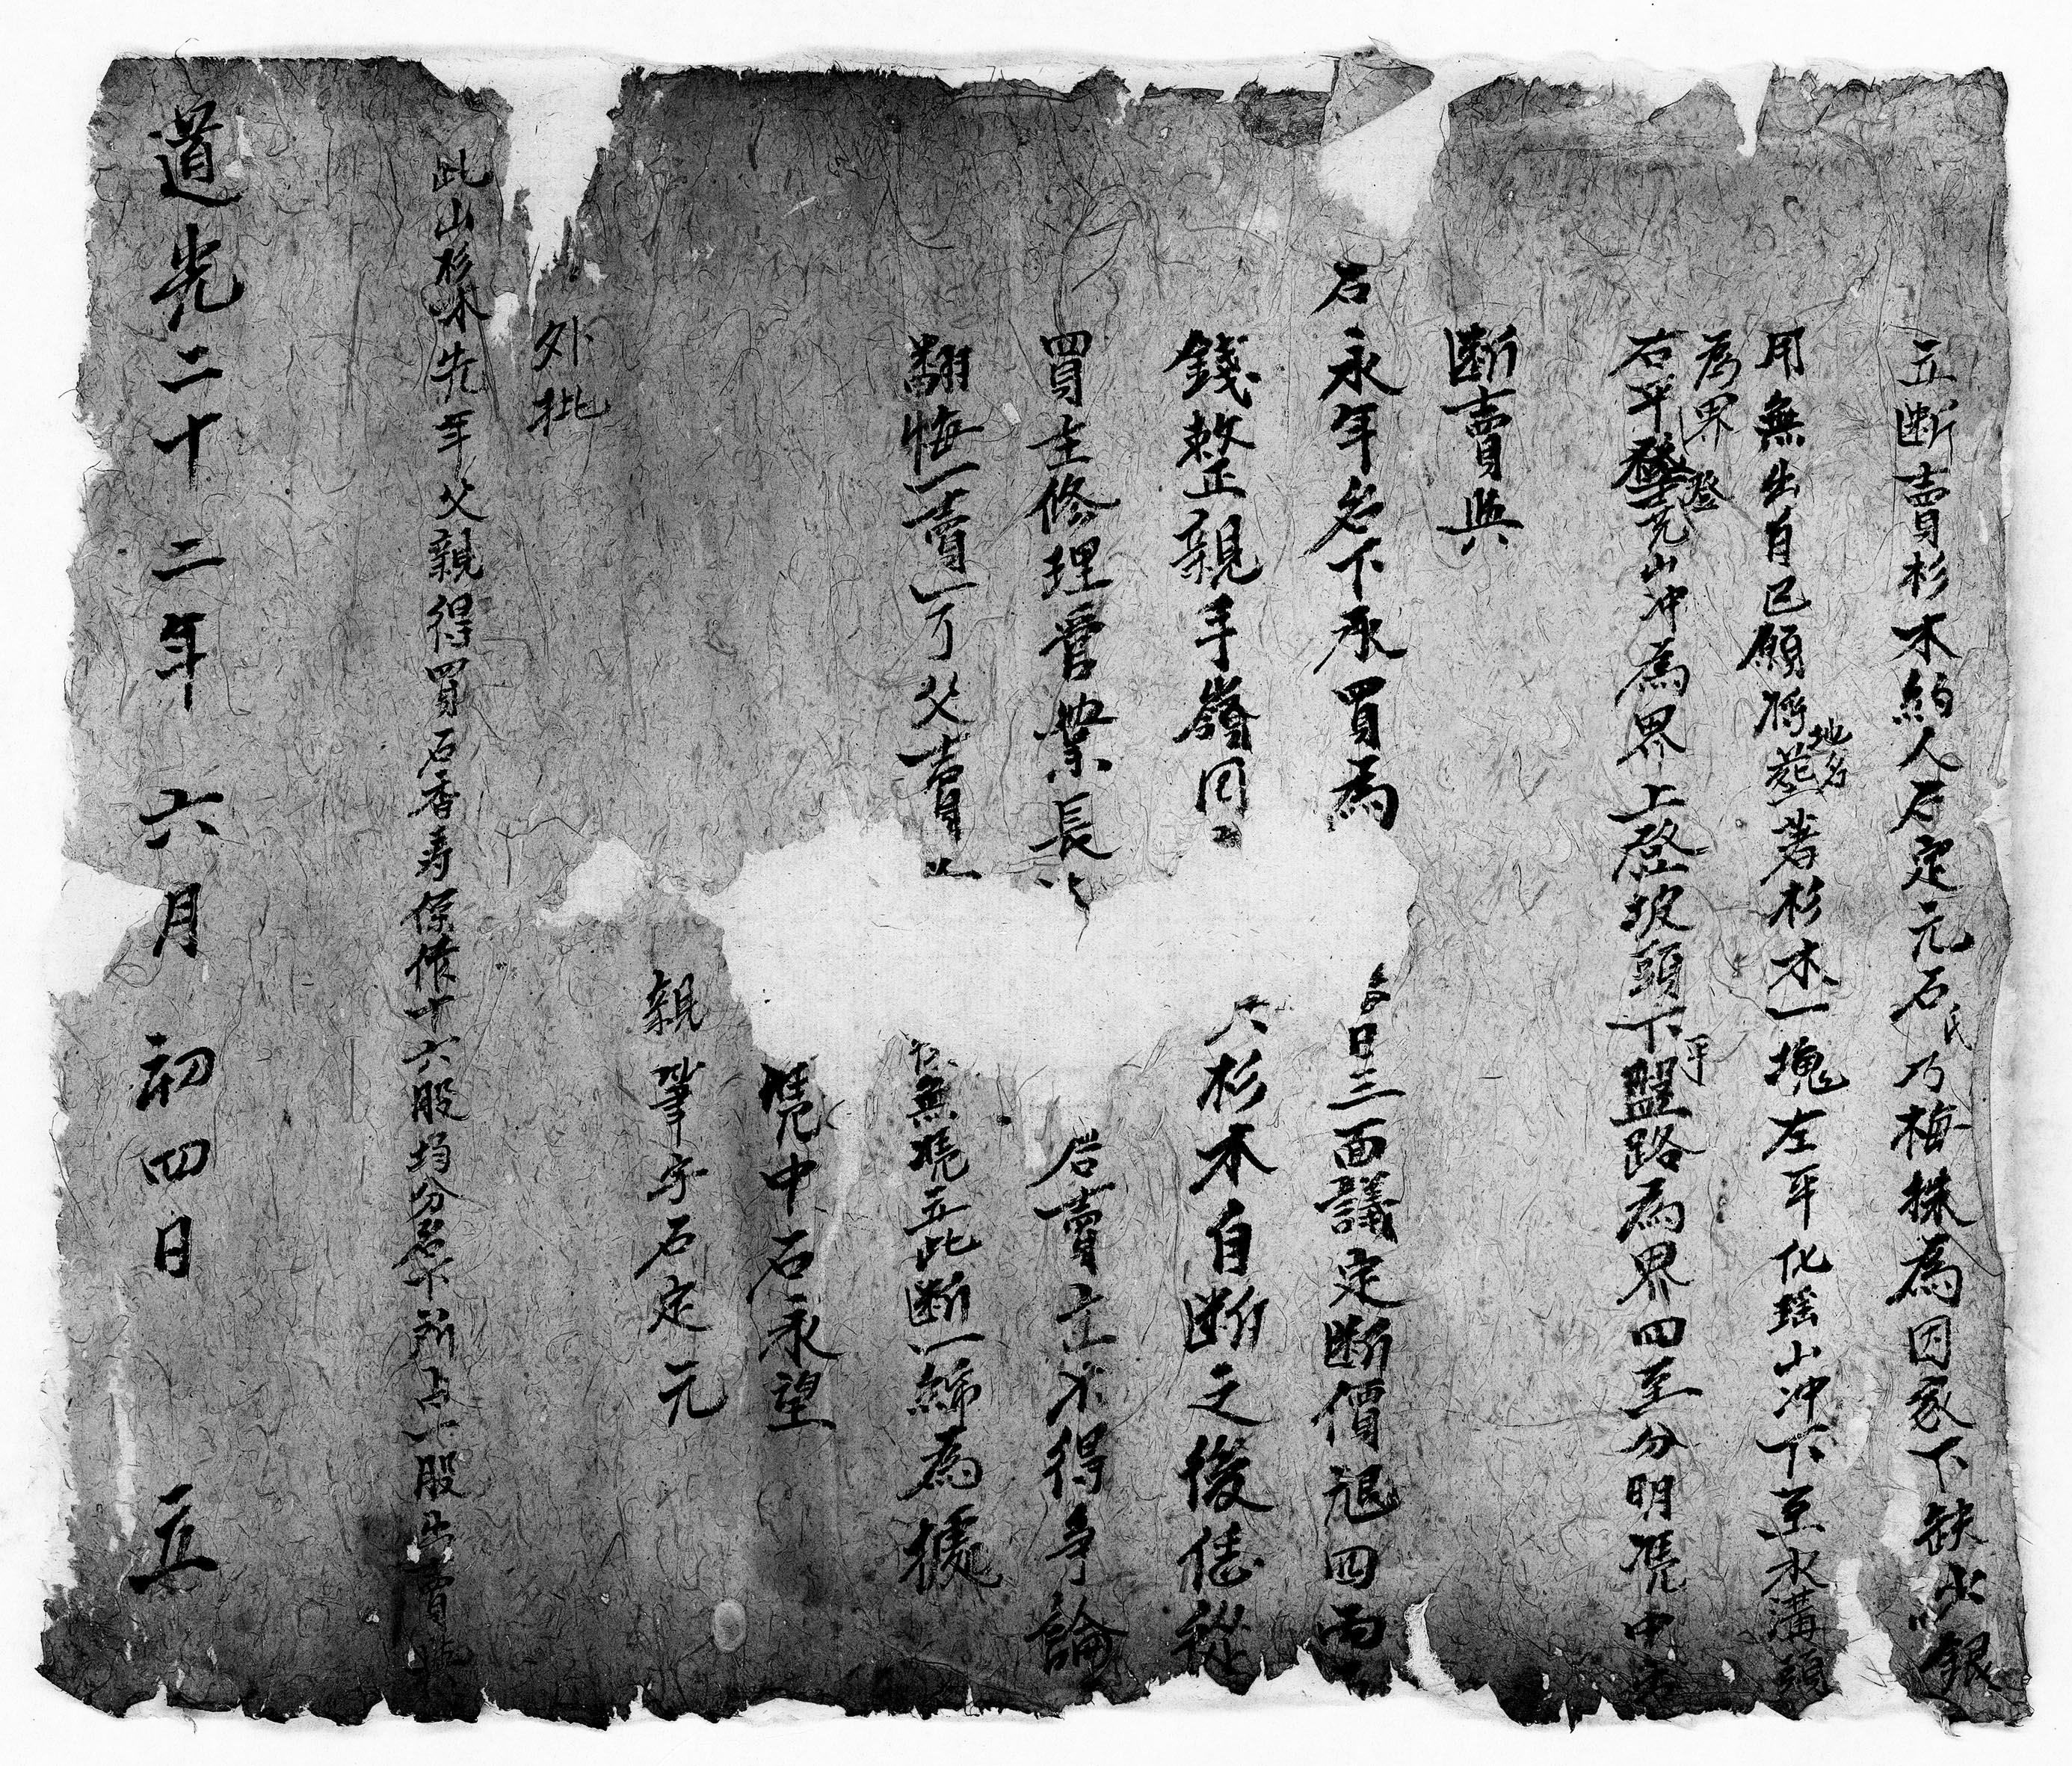 立断賣杉木約人石定元石氏乃梅株為因家下缺少銀
用無出自已願將地名蓝著杉木一塊左平化瑶山冲下至水溝頭
為界登
右平登凭山冲為界上登坡頭下平盤路為界四至分明憑中
断賣與
石永年名下承買為 日三面議定断價銀四両
錢整親手領回 杉木自断之後任從
買主修理管業長 若賣主不得争論
翻悔一賣一了父賣 無憑立此断一紙為據
憑中石永望
親筆字石定元
外批
此山杉木先年父親得買石香寿保作十六股均分名下所占一股出賣
道光二十二年六月初四日立